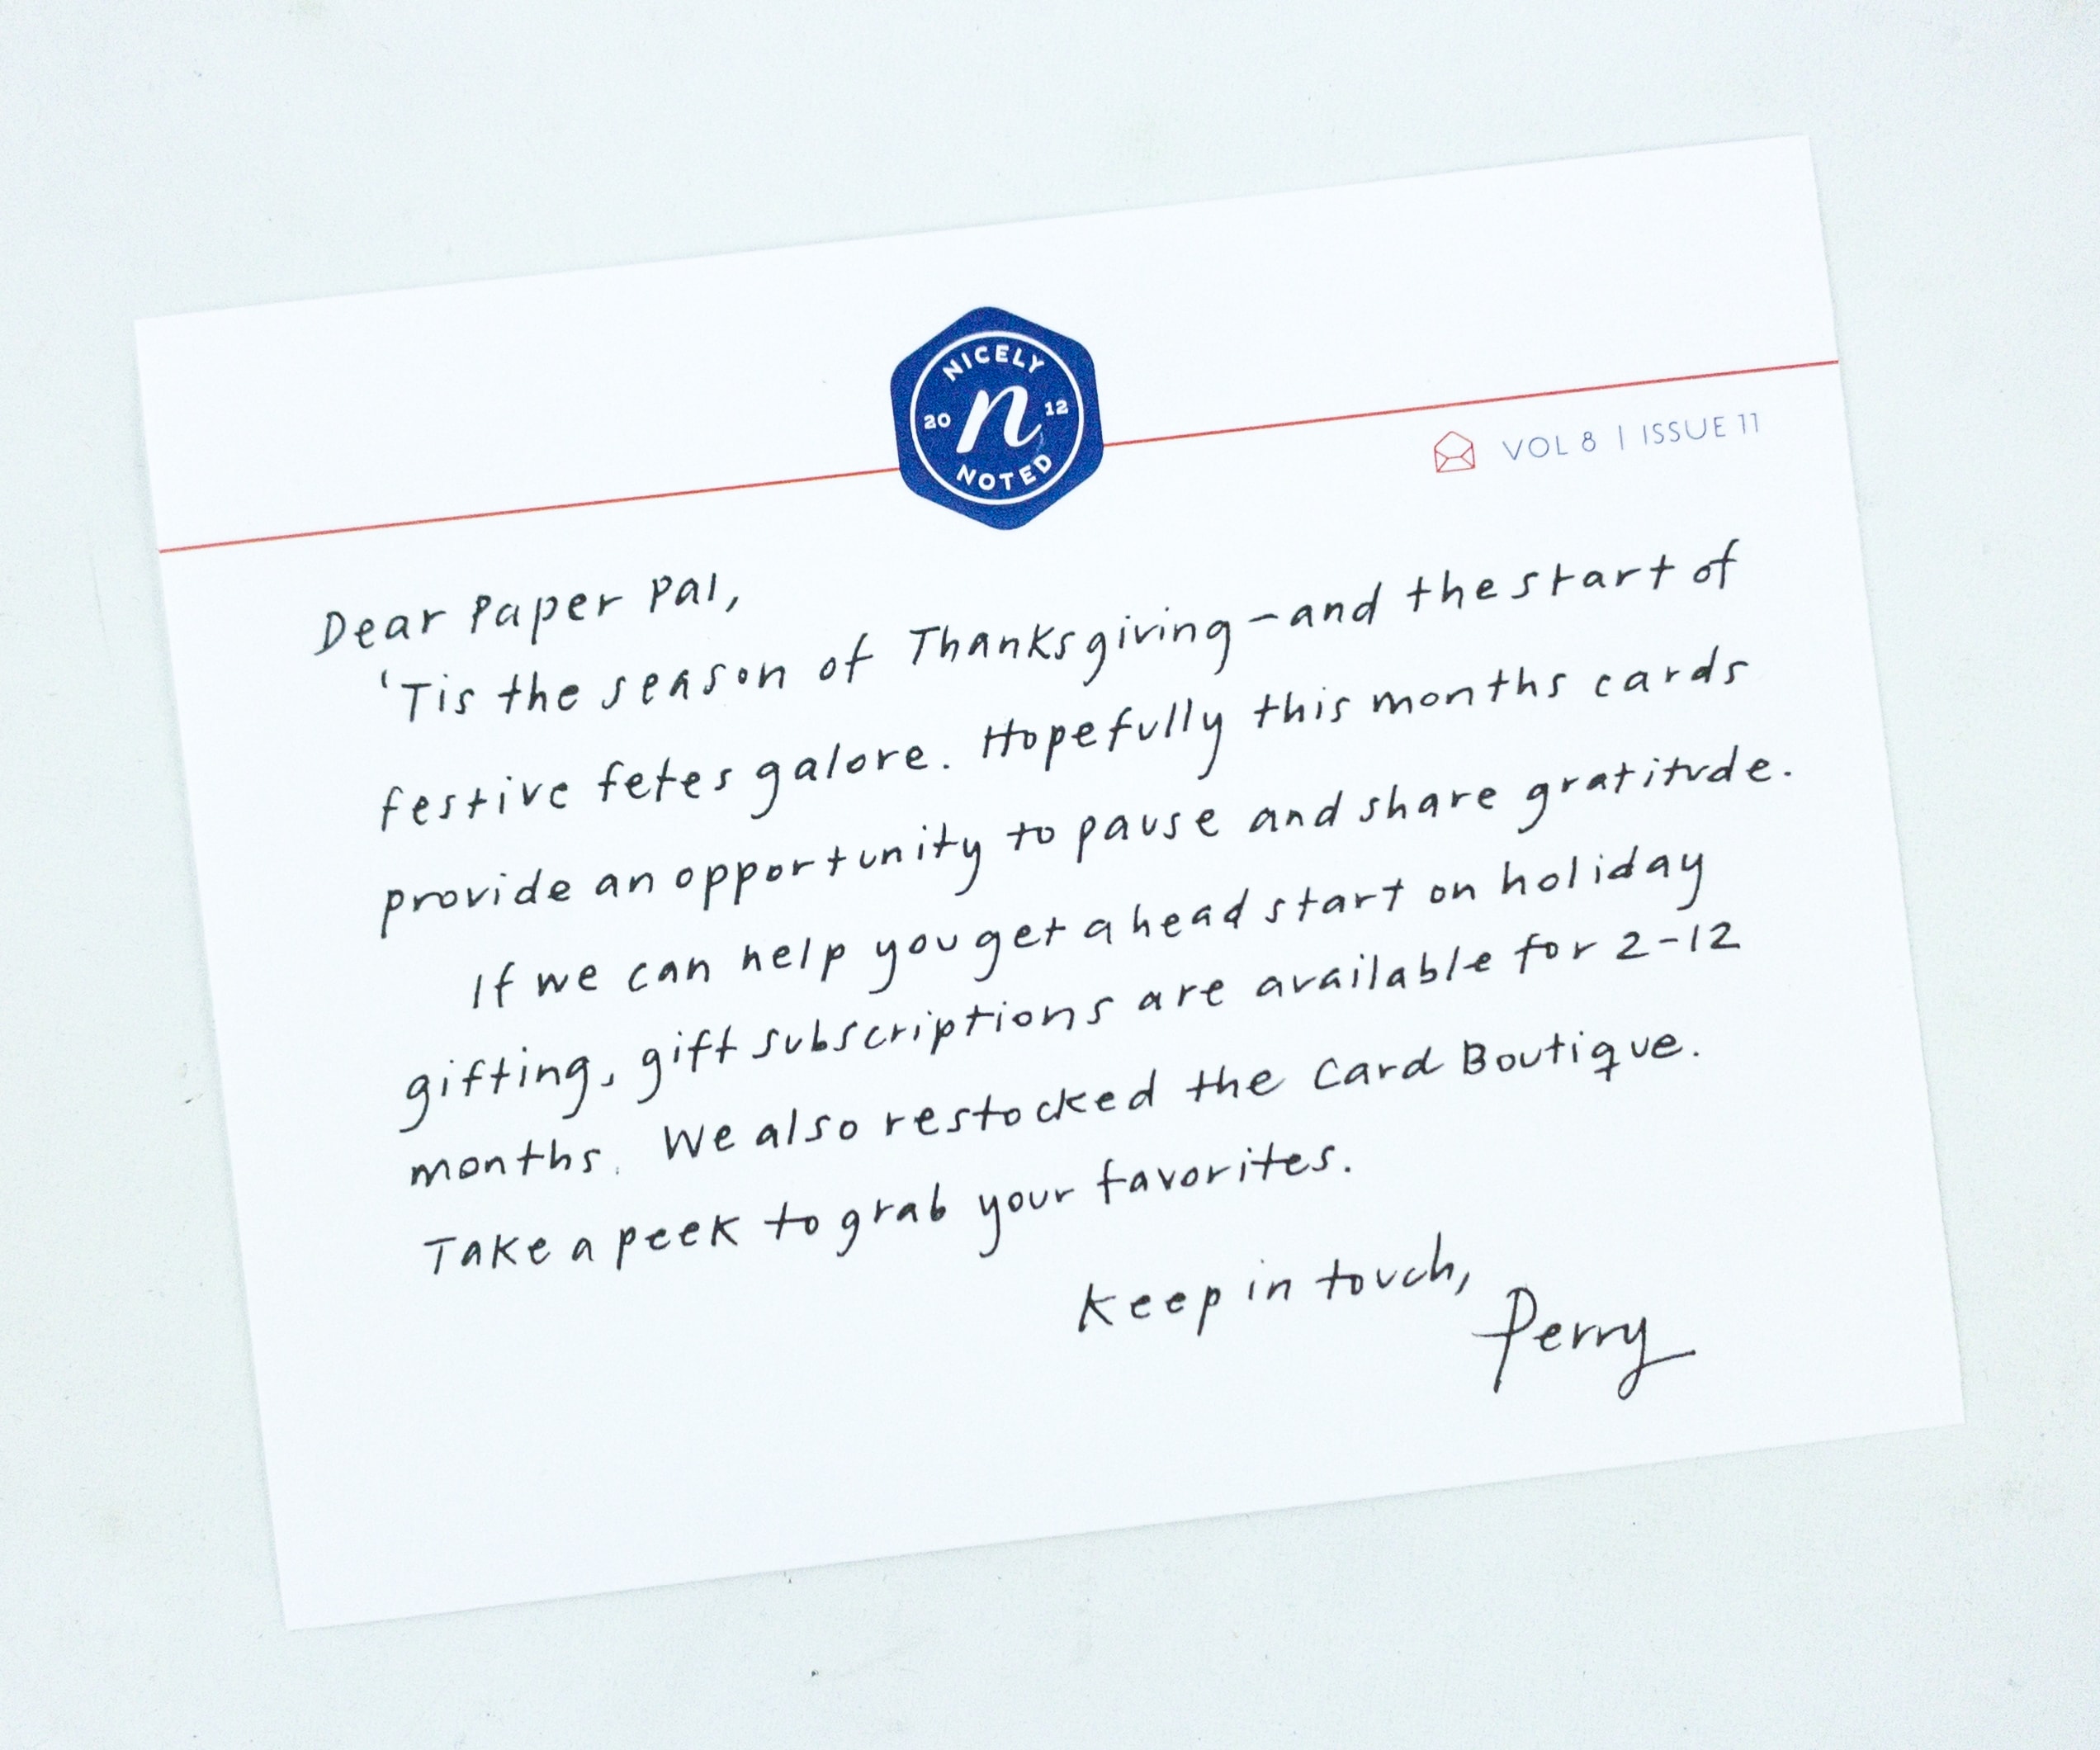 NICELY
20 n 12
NOTED
VOL 8 | ISSUE 11
Dear Paper Pal,
'Tis the season of Thanksgiving - and the start of
festive fetes galore. Hopefully this months cards
provide an opportunity to pause and share gratitude.
If we can help you get a head start on holiday
gifting, gift subscriptions are available for 2-12
months. We also restocked the Card Boutique.
Take a peek to grab your favorites.
Keep in touch,
Perry